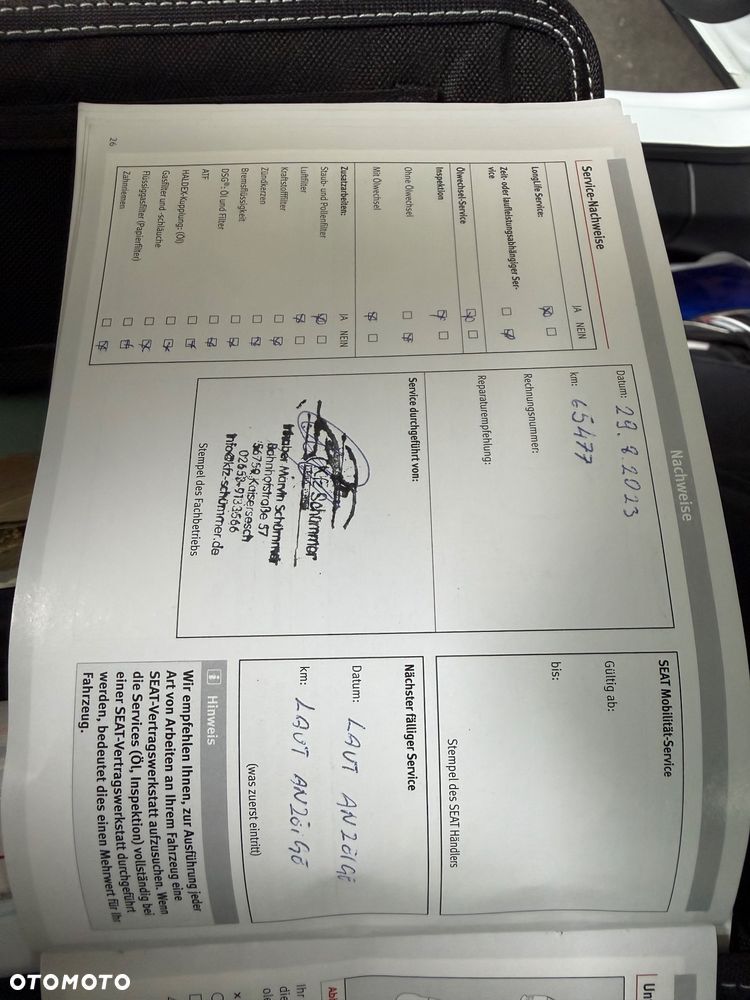 Nachweise
Service-Nachweise
JA NEIN
LongLife Service:
Zeit- oder laufleistungsabhängiger Ser-
vice
Ölwechsel-Service
Inspektion
Ohne Ölwechsel
Mit Ölwechsel
Zusatzarbeiten: JA NEIN
Staub- und Pollenfilter
Luftfilter
Kraftstofffilter
Zündkerzen
Bremsflüssigkeit
DSG®: Öl und Filter
ATF
HALDEX-Kupplung: (Öl)
Gasfilter und -schläuche
Flüssiggasfilter (Papierfilter)
Zahnriemen
26
Datum: 29.8.2023
km: 65477
Rechnungsnummer:
Reparaturempfehlung:
Service durchgeführt von:
Kfz Schümmer
Inhaber Marvin Schümmer
Bahnhofstraße 57
56759 Kaisersesch
02653-9133566
info@kfz-schümmer.de
Stempel des Fachbetriebs
SEAT Mobilität-Service
Gültig ab:
bis:
Stempel des SEAT Händlers
Nächster fälliger Service
Datum: LAUT ANZEIGE
km: LAUT ANZEIGE
(was zuerst eintritt)
i Hinweis
Wir empfehlen Ihnen, zur Ausführung jeder
Art von Arbeiten an Ihrem Fahrzeug eine
SEAT-Vertragswerkstatt aufzusuchen. Wenn
die Services (Öl, Inspektion) vollständig bei
einer SEAT-Vertragswerkstatt durchgeführt
werden, bedeutet dies einen Mehrwert für Ihr
Fahrzeug.
OTOMOTO